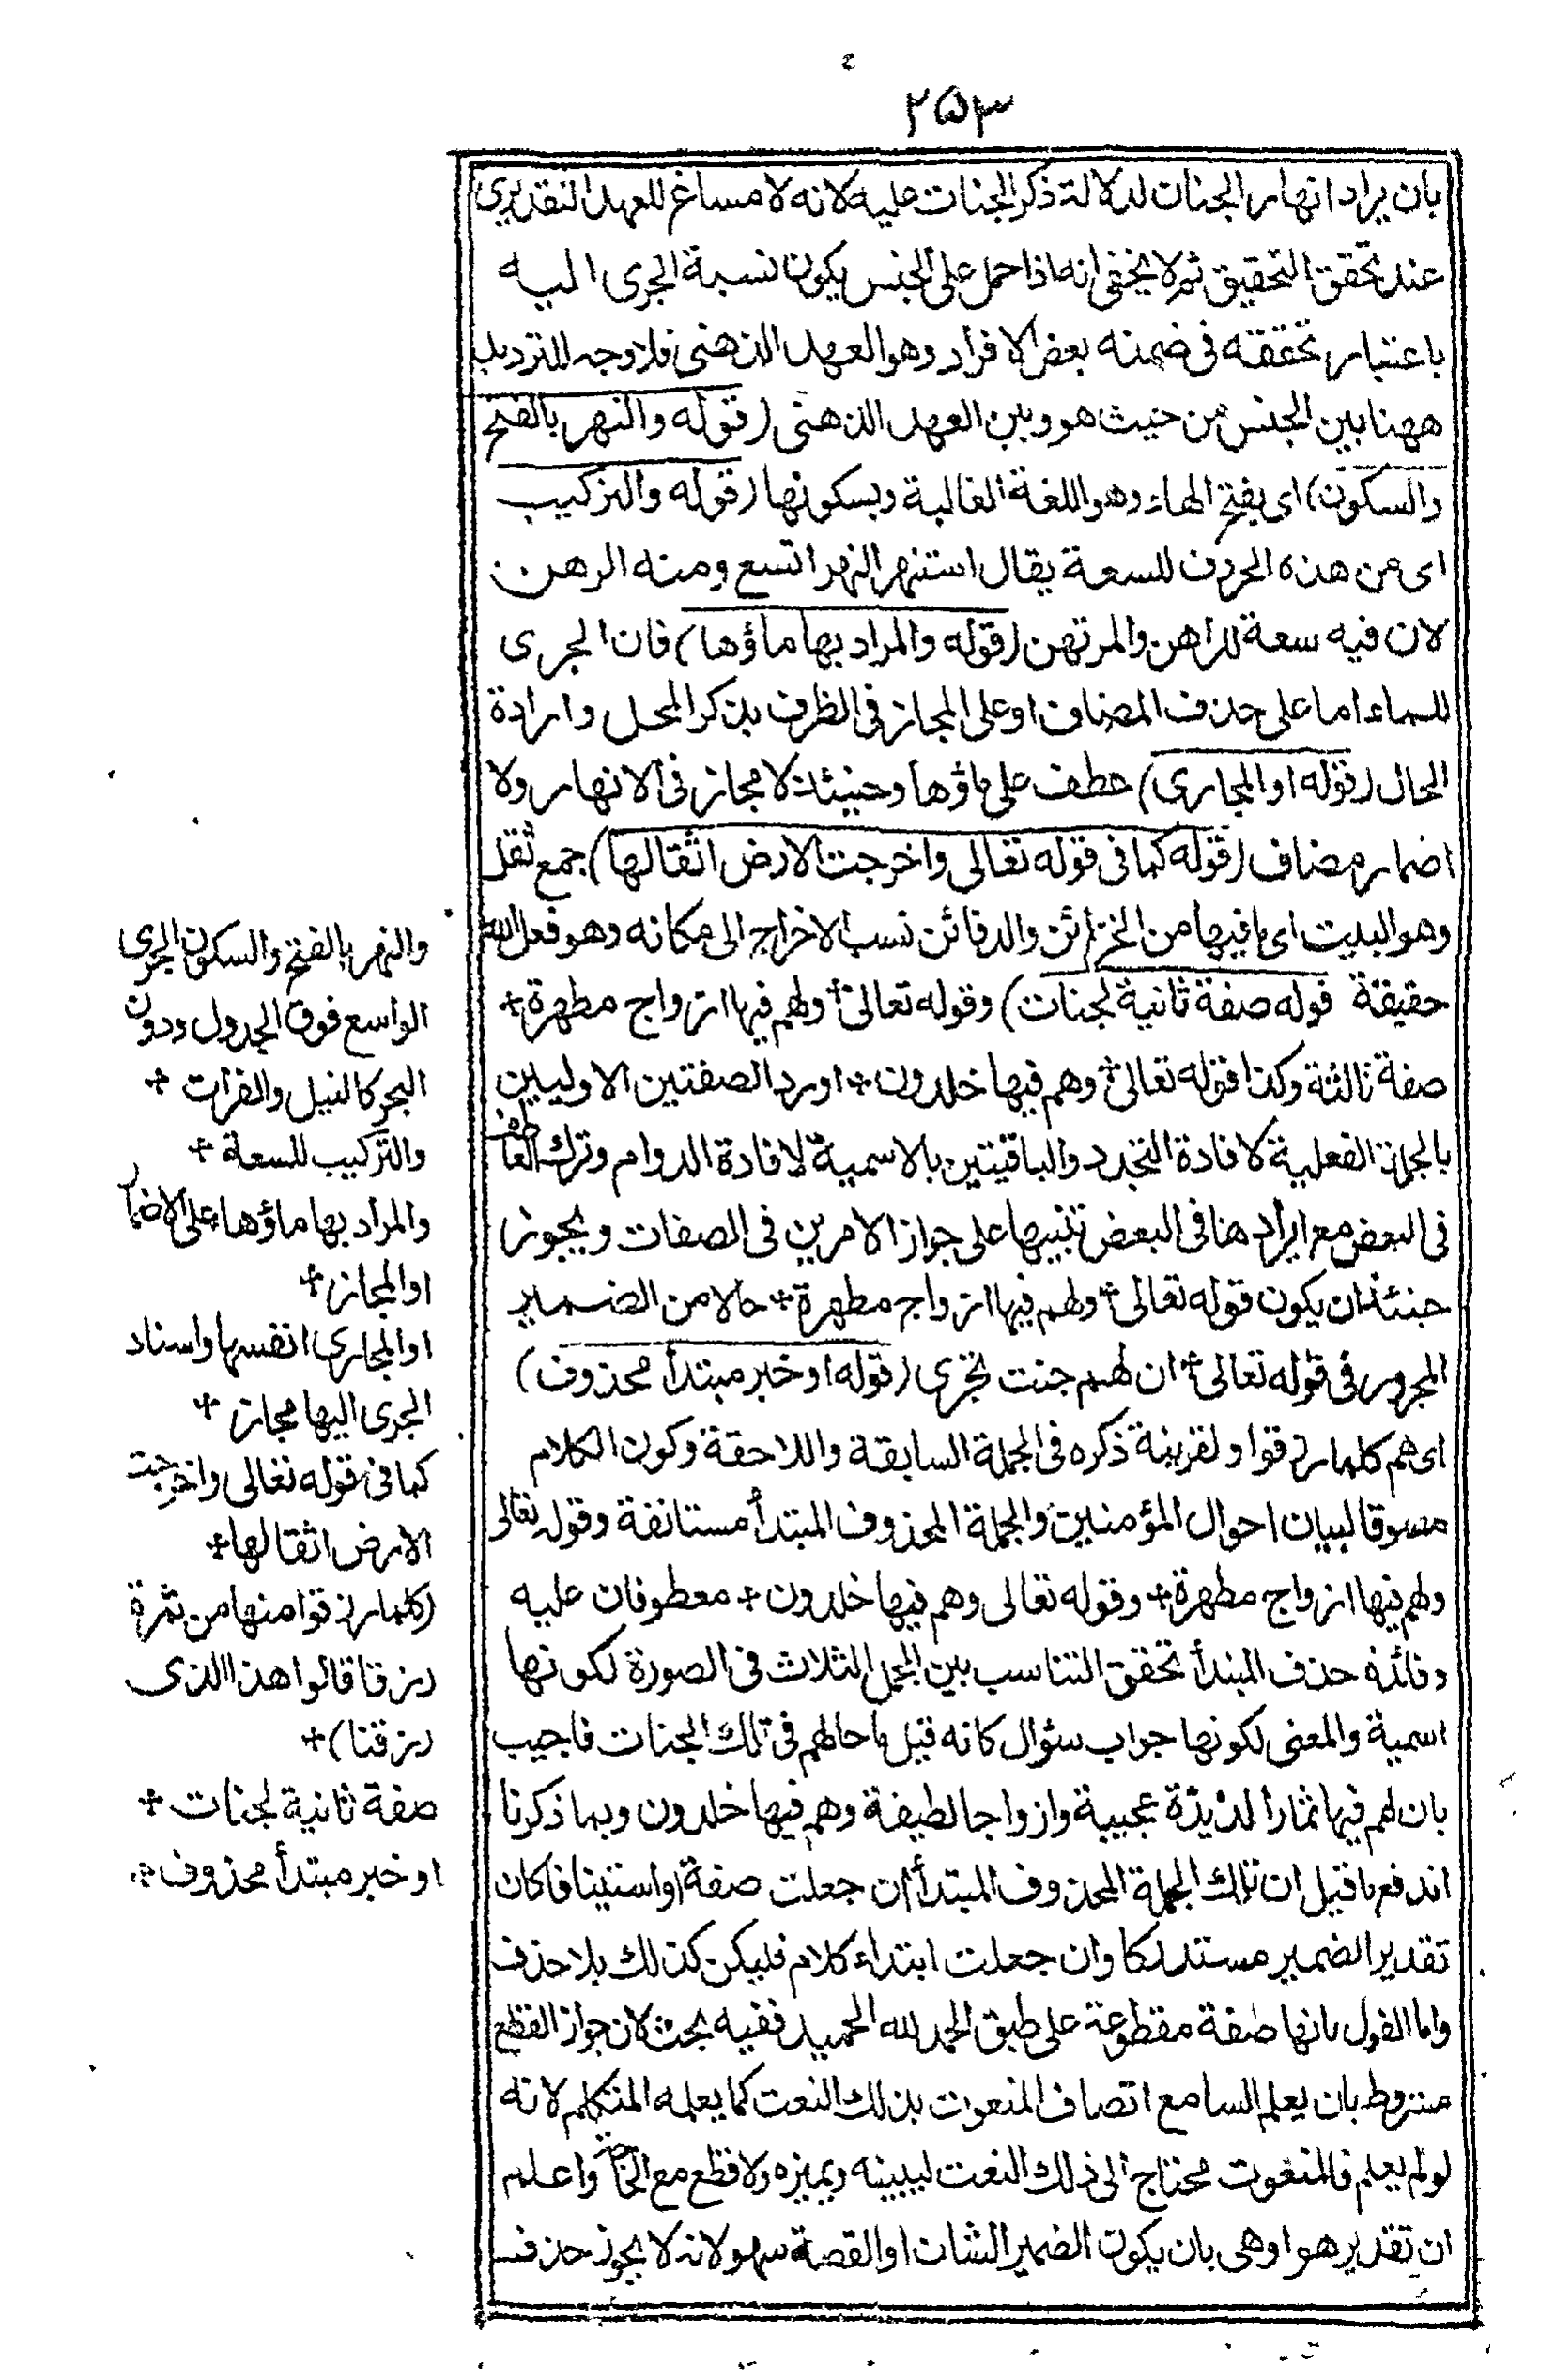 ٢٥٣
بان يراد انهار الجنات لدلالة ذكر الجنات عليه لانه لا مساغ للعهد التقديري
عند تحقق التحقيق ثم لا يخفى انه اذا حمل على الجنس يكون نسبة الجرى اليه
باعتبار تحققه فى ضمنه بعض الافراد وهو العهد الذهنى فلا وجه للترديد
ههنا بين الجنس من حيث هو وبين العهد الذهنى (قوله والنهر بالفتح
والسكون) اى بفتح الهاء وهو اللغة الغالبة وبسكونها (قوله والتركيب
اى من هذه الحروف للسعة يقال استنهر النهر اتسع ومنه الرهن
لان فيه سعة للراهن والمرتهن (قوله والمراد بها ماؤها) فان الجرى
للماء اما على حذف المضاف او على المجاز فى الظرف بذكر المحل وارادة
الحال (قوله او المجارى) عطف على ماؤها وحينئذ لا مجاز فى الانهار ولا
اضمار مضاف (قوله كما فى قوله تعالى واخرجت الارض اثقالها) جمع ثقل
وهو البيت اى ما فيها من الخزائن والدفائن نسب الاخراج الى مكانه وهو فعل الله
حقيقة قوله صفة ثانية لجنات) وقوله تعالى + ولهم فيها ازواج مطهرة +
صفة ثالثة وكذا قوله تعالى + وهم فيها خلدون + اورد الصفتين الاوليين
بالجملة الفعلية لافادة التجدد والباقيتين بالاسمية لافادة الدوام وترك العاطف
فى البعض مع ايرادها فى البعض تنبيها على جواز الامرين فى الصفات ويجوز
حينئذ ان يكون قوله تعالى + ولهم فيها ازواج مطهرة + حالا من الضمير
المجرور فى قوله تعالى + ان لهم جنت تجرى (قوله او خبر مبتدأ محذوف)
اى هم كلما رزقوا ولقرينة ذكره فى الجملة السابقة واللاحقة وكون الكلام
مسوقا لبيان احوال المؤمنين والجملة المحذوف المبتدأ مستانفة وقوله تعالى
ولهم فيها ازواج مطهرة + وقوله تعالى وهم فيها خلدون + معطوفان عليه
وفائدة حذف المبتدأ تحقق التناسب بين الجمل الثلاث فى الصورة لكونها
اسمية والمعنى لكونها جواب سؤال كانه قيل ما حالهم فى تلك الجنات فاجيب
بان لهم فيها ثمارا لذيذة عجيبة وازواجا لطيفة وهم فيها خلدون وبما ذكرنا
اندفع ما قيل ان تلك الجملة المحذوف المبتدأ ان جعلت صفة او استينافا كان
تقدير الضمير مستدركا وان جعلت ابتداء كلام فليكن كذلك بلا حذف
واما القول بانها صفة مقطوعة على طبق الحمد لله الحميد ففيه بحث لان جواز القطع
مشروط بان يعلم السامع اتصاف المنعوت بذلك النعت كما يعلمه المتكلم لانه
لو لم يعلم فالمنعوت محتاج الى ذلك النعت ليبينه ويميزه ولا قطع مع الحاجة واعلم
ان تقدير هو او هى بان يكون الضمير الشان او القصة سهو لانه لا يجوز حذف
والنهر بالفتح والسكون المجرى
الواسع فوق الجدول ودون
البحر كالنيل والفرات +
والتركيب للسعة +
والمراد بها ماؤها على الاضمار
او المجاز +
او المجارى انفسها واسناد
الجرى اليها مجاز +
كما فى قوله تعالى واخرجت
الارض اثقالها +
(كلما رزقوا منها من ثمرة
رزقا قالوا هذا الذى
رزقنا) +
صفة ثانية لجنات +
او خبر مبتدأ محذوف +